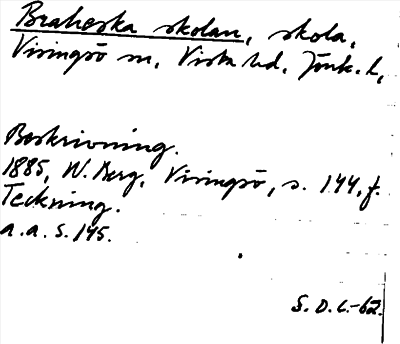 Braheska skolan, skola,
Visingsö sn, Vista hd, Jönk. l,
Beskrivning.
1885, W. Berg, Visingsö, s. 144, f.
Teckning.
a.a. s. 145.
S.D.L.-62.